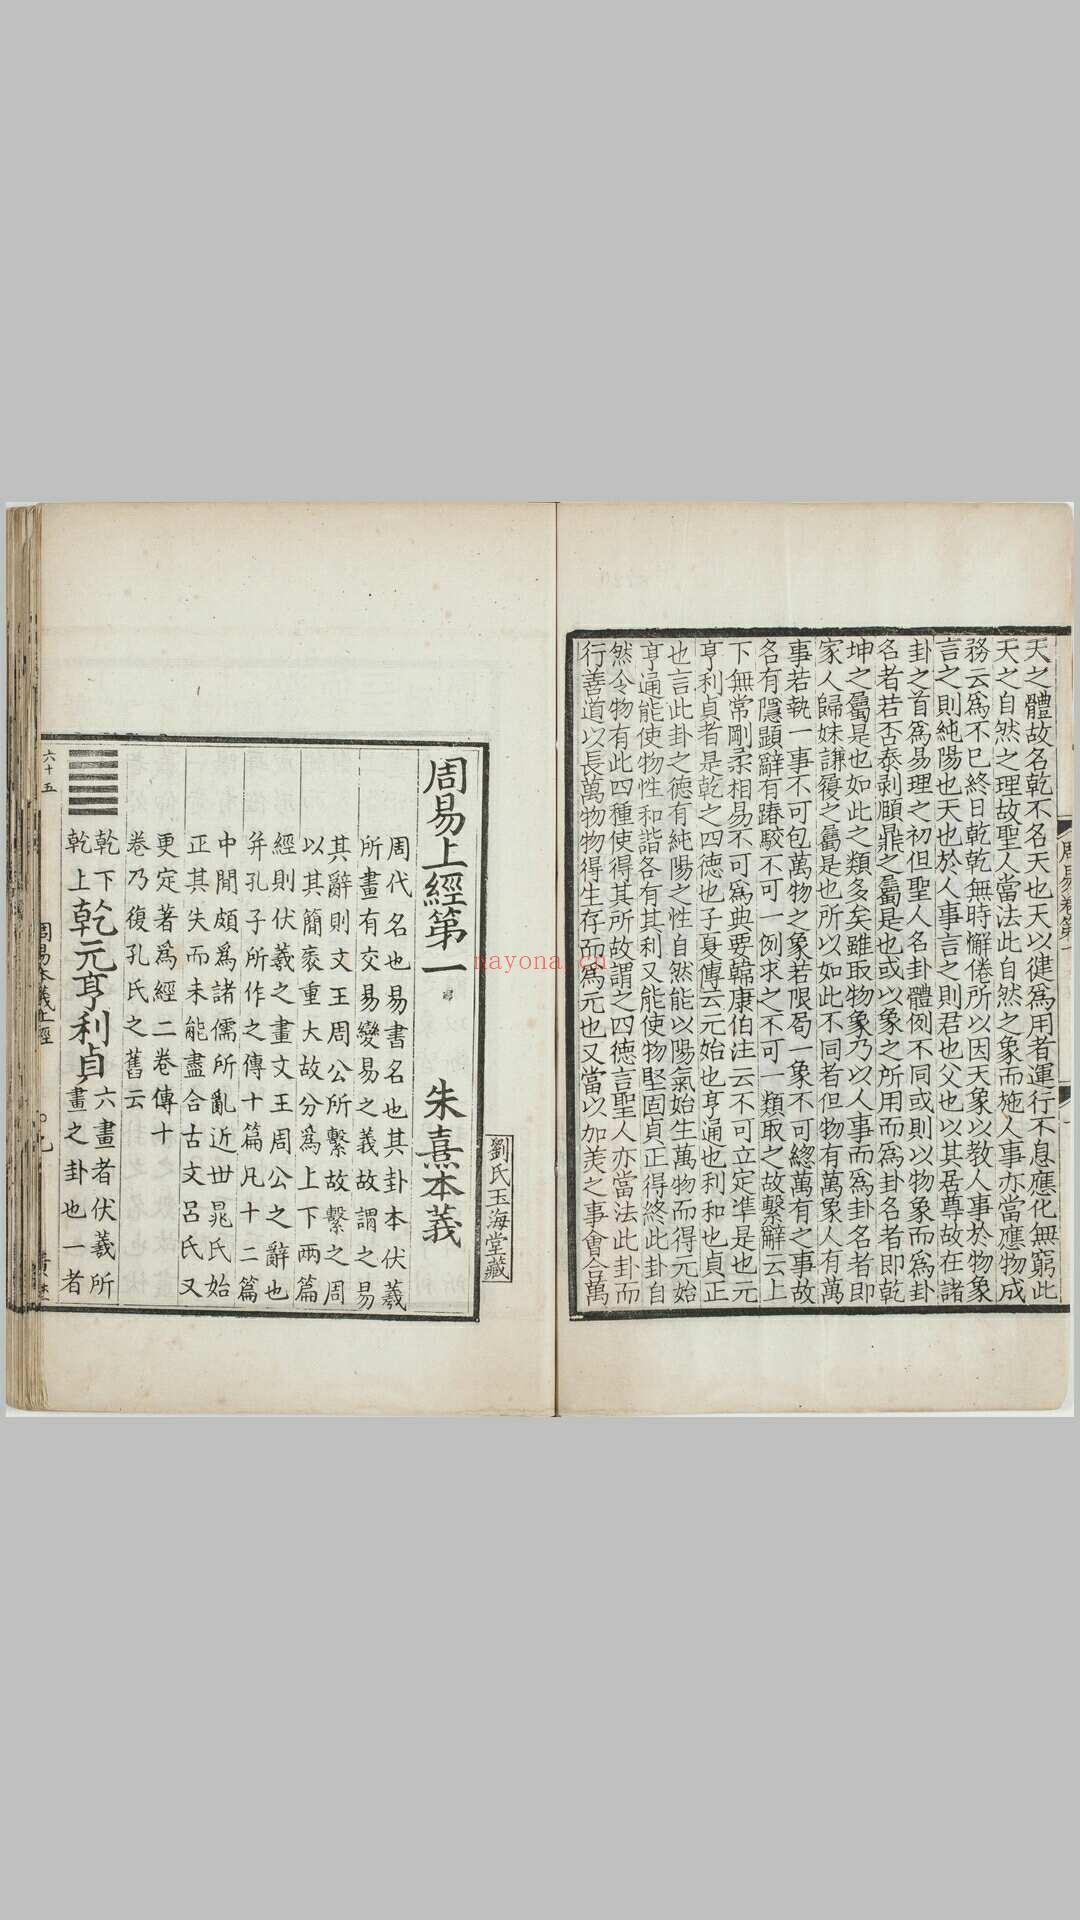 天之體故名乾不名天也天以健爲用者運行不息應化無窮此
天之自然之理故聖人當法此自然之象而施人事亦當應物成
務云爲不已終日乾乾無時懈倦所以因天象以教人事於物象
言之則純陽也天也於人事言之則君也父也以其居尊故在諸
卦之首爲易理之初但聖人名卦體例不同或則以物象而爲卦
名者若否泰剥頤鼎之屬是也或以象之所用而爲卦名者即乾
坤之屬是也如此之類多矣雖取物象乃以人事而爲卦名者即
家人歸妹謙履之屬是也所以如此不同者但物有萬象人有萬
事若執一事不可包萬物之象若限局一象不可緫萬有之事故
名有隱顯辭有踳駮不可一例求之不可一類取之故繫辭云上
下無常剛柔相易不可爲典要韓康伯注云不可立定準是也元
亨利貞者是乾之四德也子夏傳云元始也亨通也利和也貞正
也言此卦之德有純陽之性自然能以陽氣始生萬物而得元始
亨通能使物性和諧各有其利又能使物堅固貞正得終此卦自
然令物有此四種使得其所故謂之四德言聖人亦當法此卦而
行善道以長萬物物得生存而爲元也又當以加美之事會合萬
周易卷第一
劉氏玉海堂藏
周易上經第一 朱熹本義
周代名也易書名也其卦本伏羲
所畫有交易變易之義故謂之易
其辭則文王周公所繫故繫之周
以其簡袠重大故分爲上下兩篇
經則伏羲之畫文王周公之辭也
并孔子所作之傳十篇凡十二篇
中閒頗爲諸儒所亂近世晁氏始
正其失而未能盡合古文呂氏又
更定著爲經二卷傳十
卷乃復孔氏之舊云
乾下
乾上
乾元亨利貞
六畫者伏羲所
畫之卦也一者
六十五
周易本義上經
nayona.cn